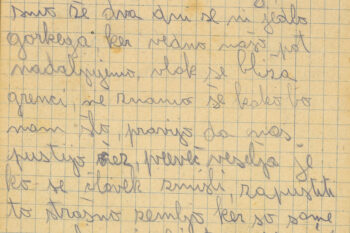 smo že dva dni se ni jedlo
gorkega; ker vedno našo pot
nadaljujemo, vlak se bliža
grenci, ne znamo še kako bo
nam šlo, pravijo da nas
pustijo čez, preveč veselja je
ko se človek zmisli, zapustiti
to strašno zemljo ker so same